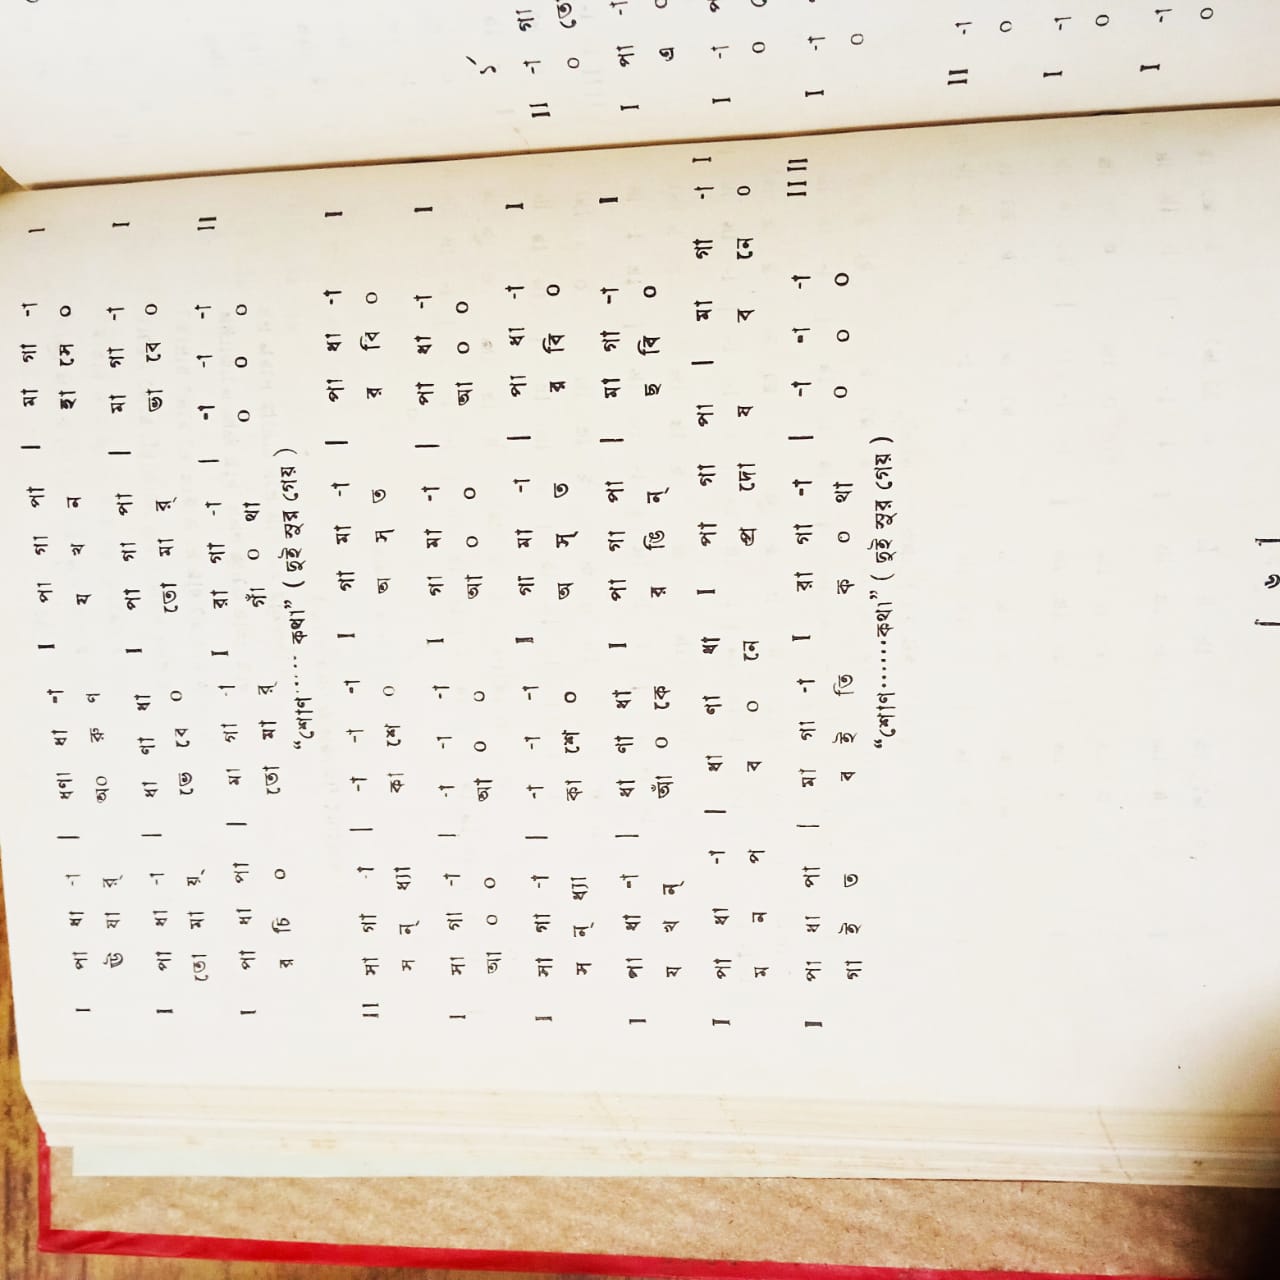 I পা ধা -া | ধণা ধা -া I পা গা পা | মা গা -া I
ঊ ষা র্ অ০ রু ণ য খ ন হা সে ০
I পা ধা -া | ধা ণা ধা I পা গা পা | মা গা -া I
তো মা য়্ ভে বে ০ তো মা র্ ভা বে ০
I পা ধা পা | মা গা -া I রা গা -া | -া -া -া II
র চি ০ তো মা র্ গাঁ ০ থা ০ ০ ০
“শোণ····· কথা” ( তুই সুর গেয় )
II সা গা -া | -া -া -া I গা মা -া | পা ধা -া I
স ন্ ধ্যা কা শে ০ অ স্ ত র বি ০
I সা গা -া | -া -া -া I গা মা -া | পা ধা -া I
আ ০ ০ আ ০ ০ আ ০ ০ আ ০ ০
I সা গা -া | -া -া -া II গা মা -া | পা ধা -া I
স ন্ ধ্যা কা শে ০ অ স্ ত র বি ০
I পা ধা -া | ধা ণা ধা I পা গা পা | মা গা -া I
য খ ন্ আঁ ০ কে র ভি ন্ ছ বি ০
I পা ধা -া | ধা ণা ধা I পা গা পা | মা গা -া I
ম ন প ব ০ নে প্র দো ষ ব নে ০
I পা ধা পা | মা গা -া I রা গা -া | -া -া -া II II
গা ই ত ব ই তি ক ০ থা ০ ০ ০
“শোণ······কথা” ( তুই সুর গেয় )
১´
II -া গা
০ তো
I পা -া
এ ০
I -া
০
I -া
০
II -া
০
I -া
০
I -া
০